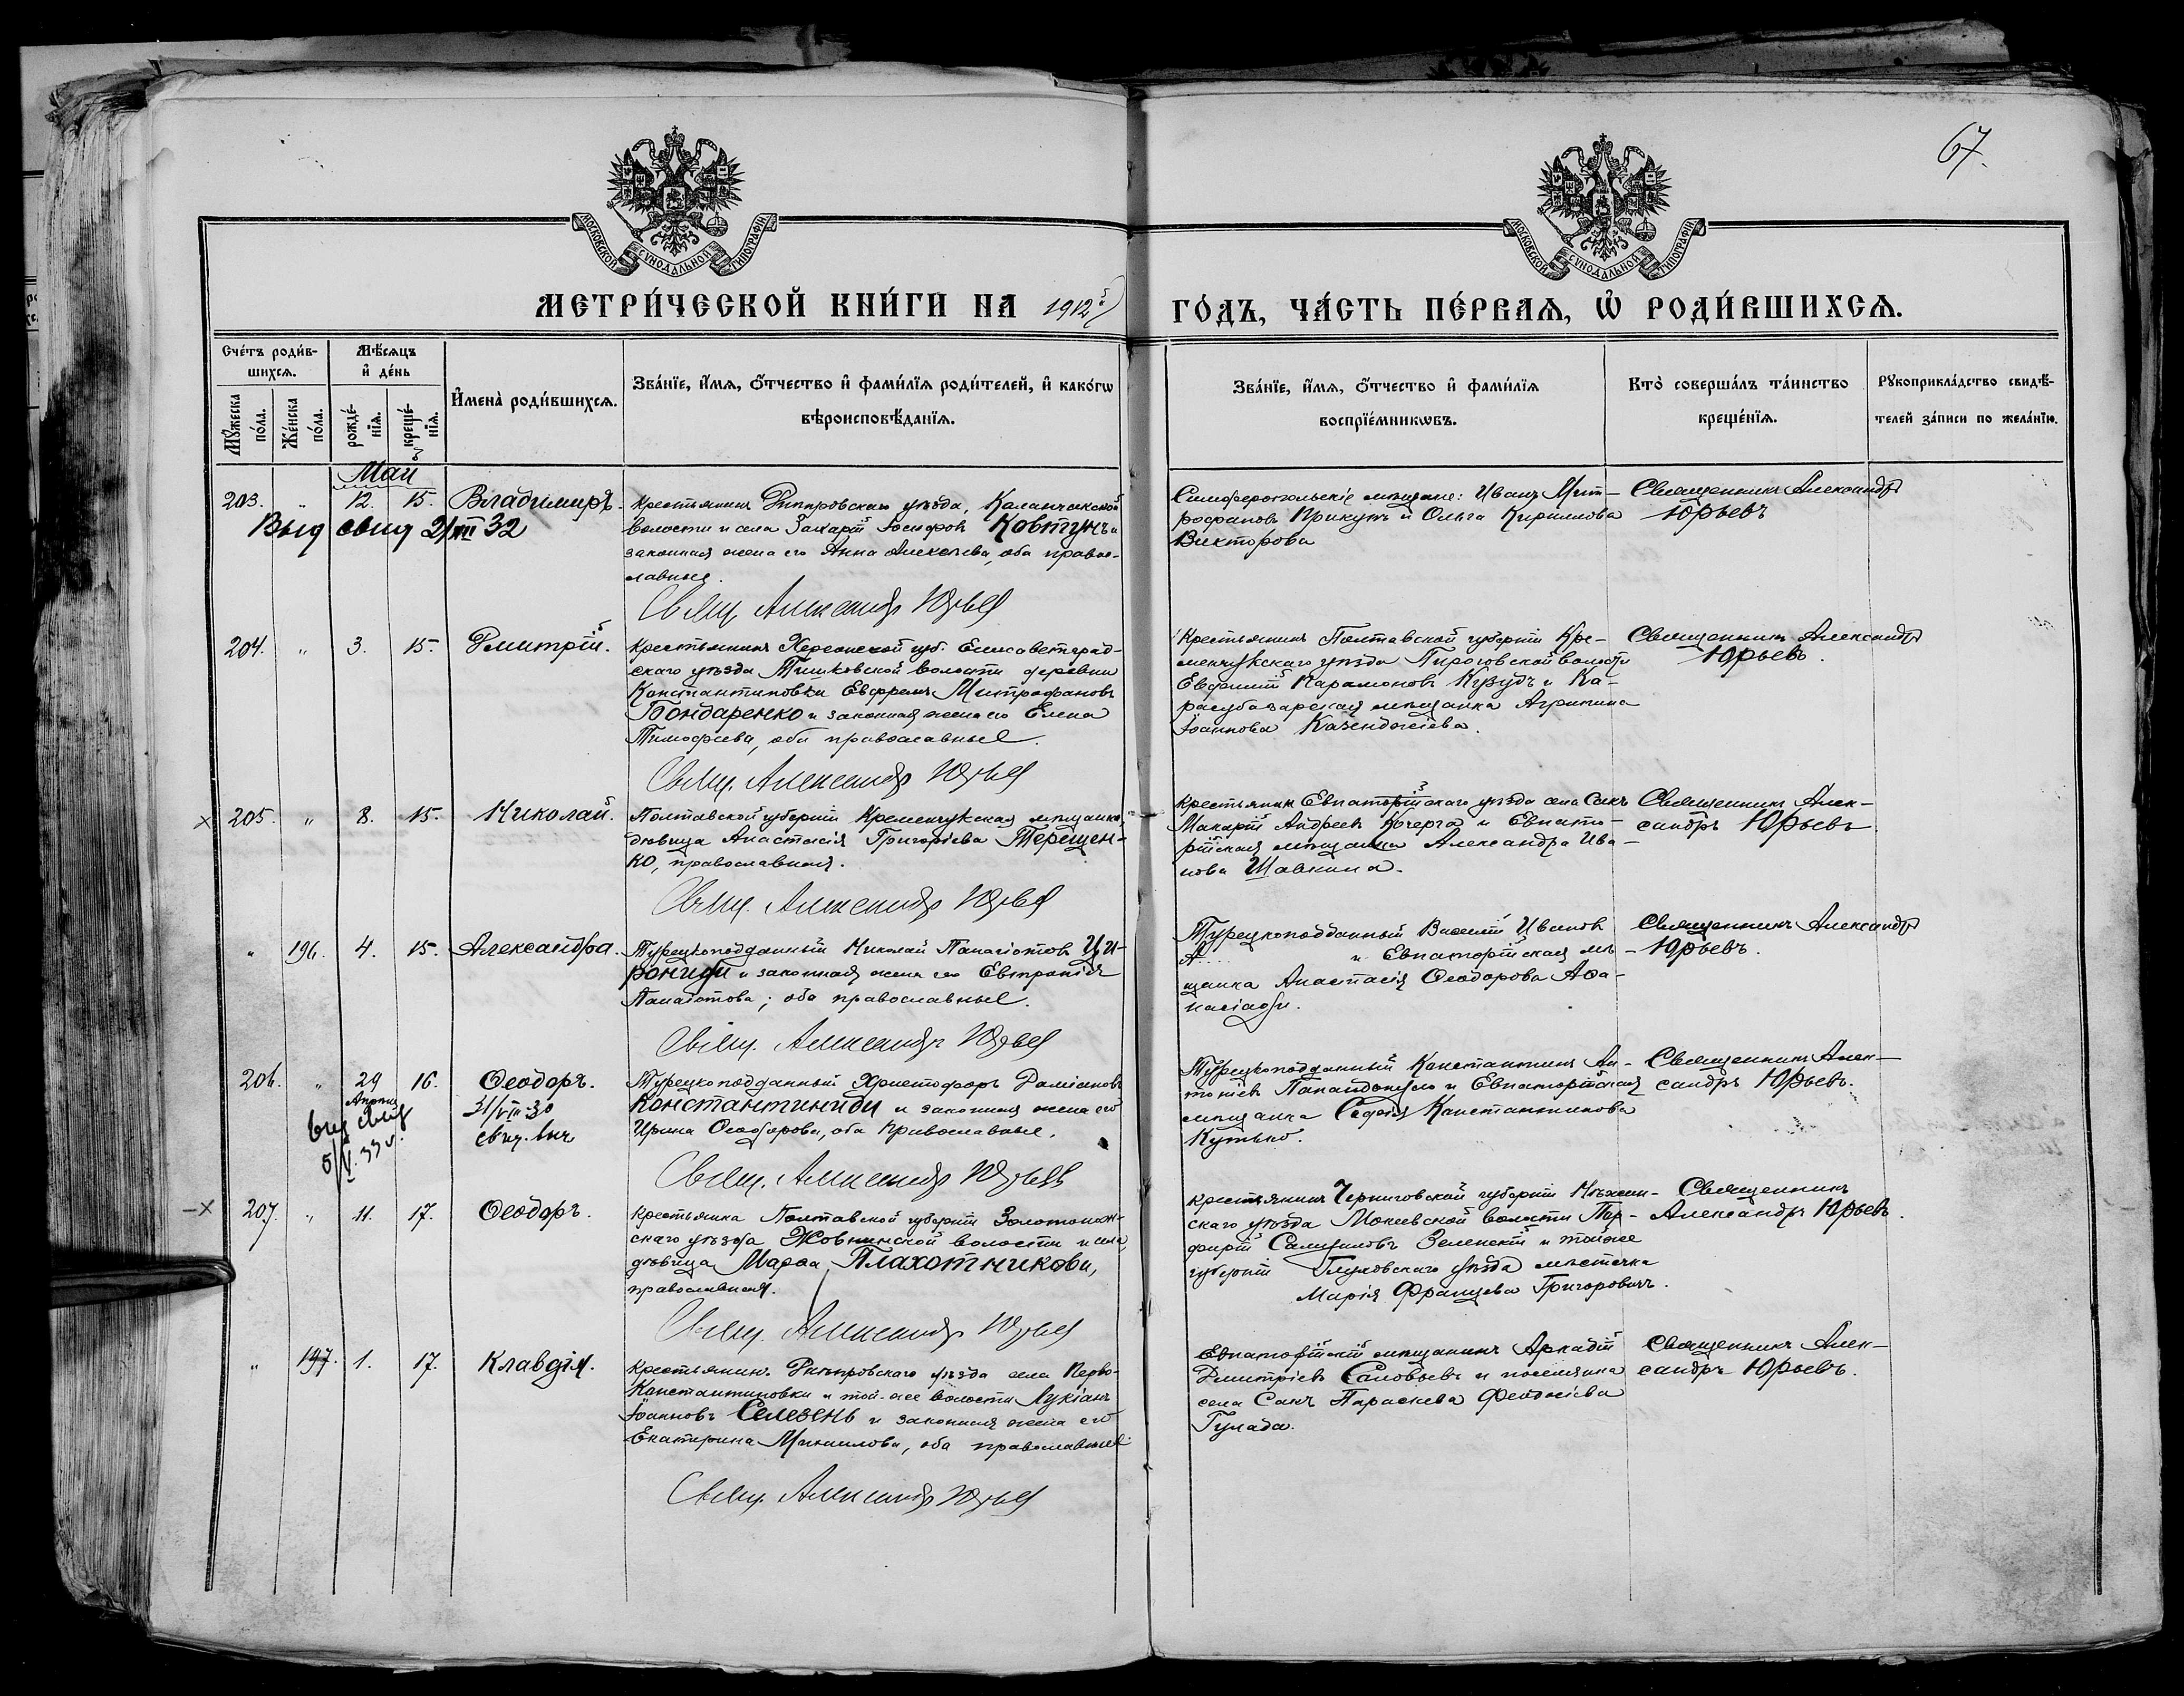 67.
МОСКОВСКОЙ СѴНОДАЛЬНОЙ ТИПОГРАФІИ
МОСКОВСКОЙ СѴНОДАЛЬНОЙ ТИПОГРАФІИ
МЕТРИ́ЧЕСКОЙ КНИ́ГИ НА 1912 й
ГО́ДЪ, ЧА́СТЬ ПЕ́РВАѦ, Ѽ РОДИ́ВШИХСѦ.
Сче́тъ роди́в-
шихсѧ.
Мꙋ́жеска по́ла.
Же́нска по́ла.
Мѣ́сѧцъ
и҆ де́нь
рожде́-
нїѧ.
креще́-
нїѧ.
И҆мена̀ роди́вшихсѧ.
Зва́нїе, и҆́мѧ, ѻ҆́тчество и҆ фами́лїѧ роди́телей, и҆ како́гѡ
вѣроисповѣ́данїѧ.
Зва́нїе, и҆́мѧ, ѻ҆́тчество и҆ фами́лїѧ
воспрїе́мникѡвъ.
Кто̀ соверша́лъ та́инство
креще́нїѧ.
Рꙋкоприкла́дство свидѣ́-
телей за́писи по жела́нїю.
Май
203. " 12. 15. Владиміръ.
Выд свид 2/VIII 32
крестьянинъ Днѣпровскаго уѣзда, Каланчакской
волости и села Захарій Іосифовъ Ковтунъ и
законная жена его Анна Алексѣева, оба право-
славные.
Свящ. Александр Юрьев
Симферопольскіе мѣщане: Иванъ Мит-
рофановъ Прикутъ и Ольга Кириллова
Викторова
Священникъ Александръ
Юрьевъ
204. " 3. 15. Димитрій.
Крестьянинъ Херсонской губ. Елисаветград-
скаго уѣзда Тишковской волости деревни
Константиновки Евфремъ Митрофановъ
Бондаренко и законная жена его Елена
Тимофѣева, оба православные.
Свящ. Александр Юрьев
Крестьянинъ Полтавской губерніи Кре-
менчукскаго уѣзда Пироговской волости
Евфимій Парамоновъ и Ка-
расубазарская мѣщанка Агрипина
Іоаннова
Священникъ Александръ
Юрьевъ.
205. " 8. 15. Николай.
Полтавской губерніи Кременчукская мѣщанка
дѣвица Анастасія Григоріева Терещен-
ко, православная.
Свящ. Александр Юрьев
крестьянин Евпаторійскаго уѣзда села Сакъ
Макарій Андреевъ Кочерга и Евпато-
рійская мѣщанка Александра Ива-
нова Шавкина.
Священникъ Алек-
сандръ Юрьевъ
" 196. 4. 15. Александра.
Турецкоподданный Николай Панагіотовъ Ци-
рониди и законная жена его Евтропія
Панаіотова; оба православные.
Свящ. Александр Юрьев
Турецкоподданный Василій Ивановъ
А.... и Евпаторійская мѣ-
щанка Анастасія Ѳеодорова Аѳа-
насіади.
Священникъ Александръ
Юрьевъ.
206. " 29 16. Ѳеодоръ.
Апрѣля
выд свид
5/V. 33 г.
31/VIII-30
свид. выд
Турецкоподданный Христофоръ Даміановъ
Константиниди и законная жена его
Ирина Ѳеодорова, оба православные.
Свящ. Александр Юрьевъ
Турецкоподданный Константинъ Ан-
тоніевъ и Евпаторійская
мѣщанка Софія Константинова
Кутько.
Священникъ Алек-
сандръ Юрьевъ.
207. " 11. 17. Ѳеодоръ.
крестьянка Полтавской губерніи Золотонож-
скаго уѣзда Жовнинской волости и села
дѣвица Марѳа Плахотникова,
православная.
Свящ. Александр Юрьев
крестьянинъ Черниговской губерніи Нѣжин-
скаго уѣзда Мокеевской волости Пор-
фирій Самуиловъ Зеленскій и той же
губерніи Глуховскаго уѣзда мѣстечка
Марія Францева Григоровичъ.
Священникъ
Александръ Юрьевъ.
" 197. 1. 17. Клавдія.
крестьянинъ Днѣпровскаго уѣзда села Перво-
Константиновки и той-же волости Лукіанъ
Іоанновъ Селезень и законная жена его
Екатерина Михайлова, оба православные.
Свящ. Александр Юрьев
Евпаторійскій мѣщанинъ Аркадій
Димитріевъ Соловьевъ и поселянка
села Сакъ Параскева Феодосіева
Гулада.
Священникъ Алек-
сандръ Юрьевъ.